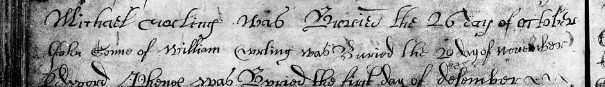 Michael Corling was Buried the 26 day of October
John Sonne of William Curling was Buried the 20 day of November
Edword Phenex was Buried the first day of desember